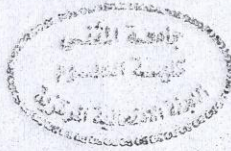 جامعة المثنى
كلية العلوم
اللجنة الامتحانية المركزية